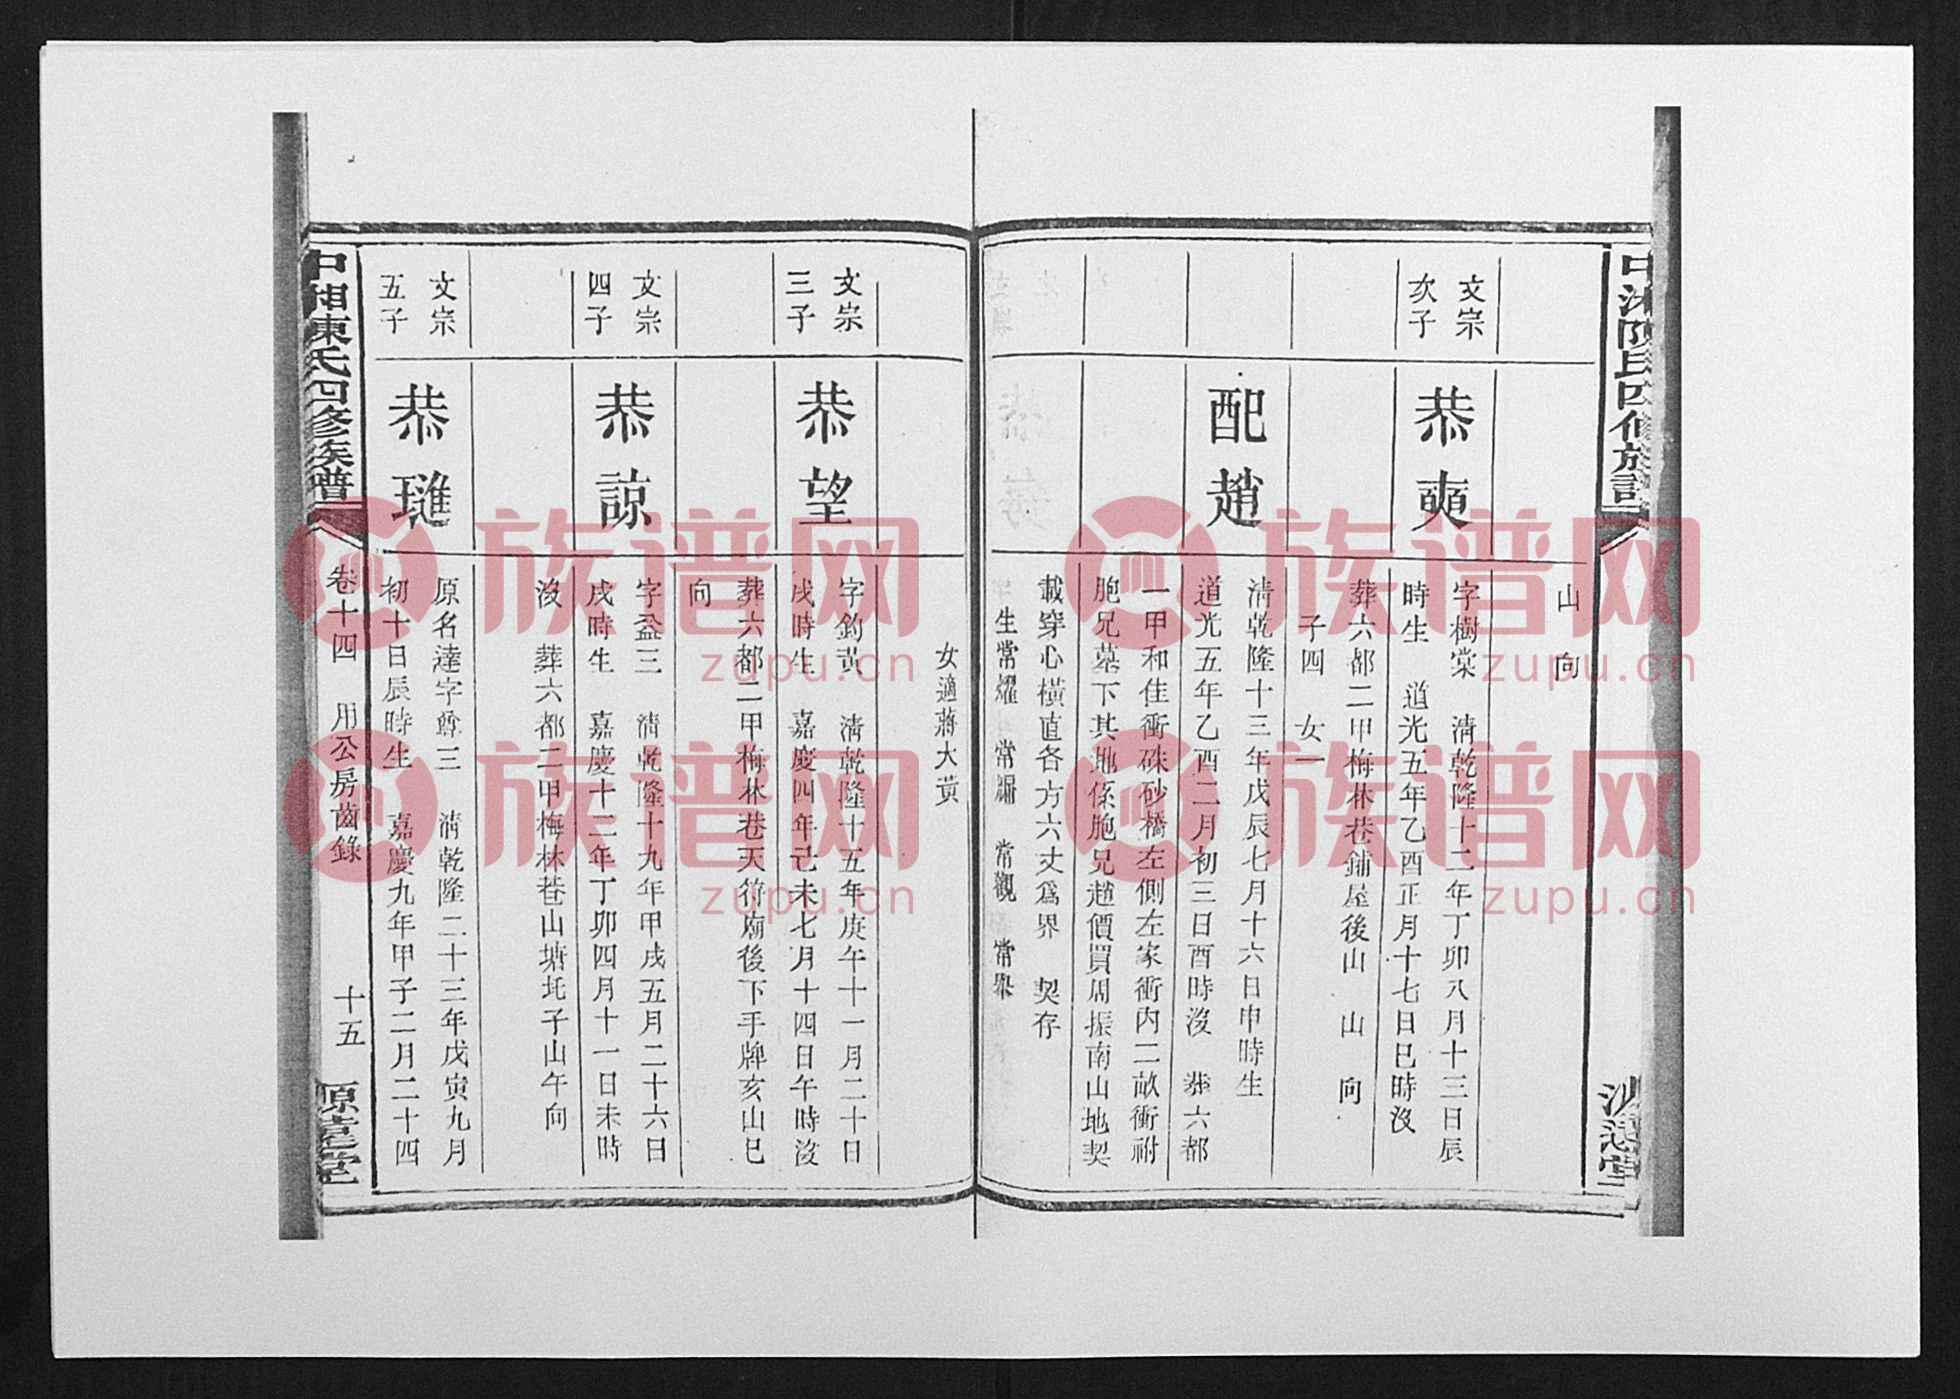 中湘陳氏四修族譜
山　向
文宗
次子
恭奭
字樹棠　清乾隆十二年丁卯八月十三日辰
時生　道光五年乙酉正月十七日巳時沒
葬六都二甲梅林巷鋪屋後山　山　向
子四　女一
配趙
清乾隆十三年戊辰七月十六日申時生
道光五年乙酉二月初三日酉時沒　葬六都
一甲和佳衝硃砂橋左側左家衝內二畝衝祔
胞兄墓下其地係胞兄趙價買周振南山地契
載穿心橫直各方六丈爲界　契存
生常燿　常　常觀　常
女適蔣大黃
文宗
三子
恭望
字鈞黃　清乾隆十五年庚午十一月二十日
戌時生　嘉慶四年己未七月十四日午時沒
葬六都二甲梅林巷天符廟後下手牌亥山巳
向
文宗
四子
恭諒
字盈三　清乾隆十九年甲戌五月二十六日
戌時生　嘉慶十二年丁卯四月十一日未時
沒　葬六都二甲梅林巷山塘坵子山午向
文宗
五子
恭璡
原名達字尊三　清乾隆二十三年戊寅九月
初十日辰時生　嘉慶九年甲子二月二十四
中湘陳氏四修族譜
卷十四　用公房齒錄　十五
族谱网
zupu.cn
族谱网
zupu.cn
族谱网
zupu.cn
族谱网
zupu.cn